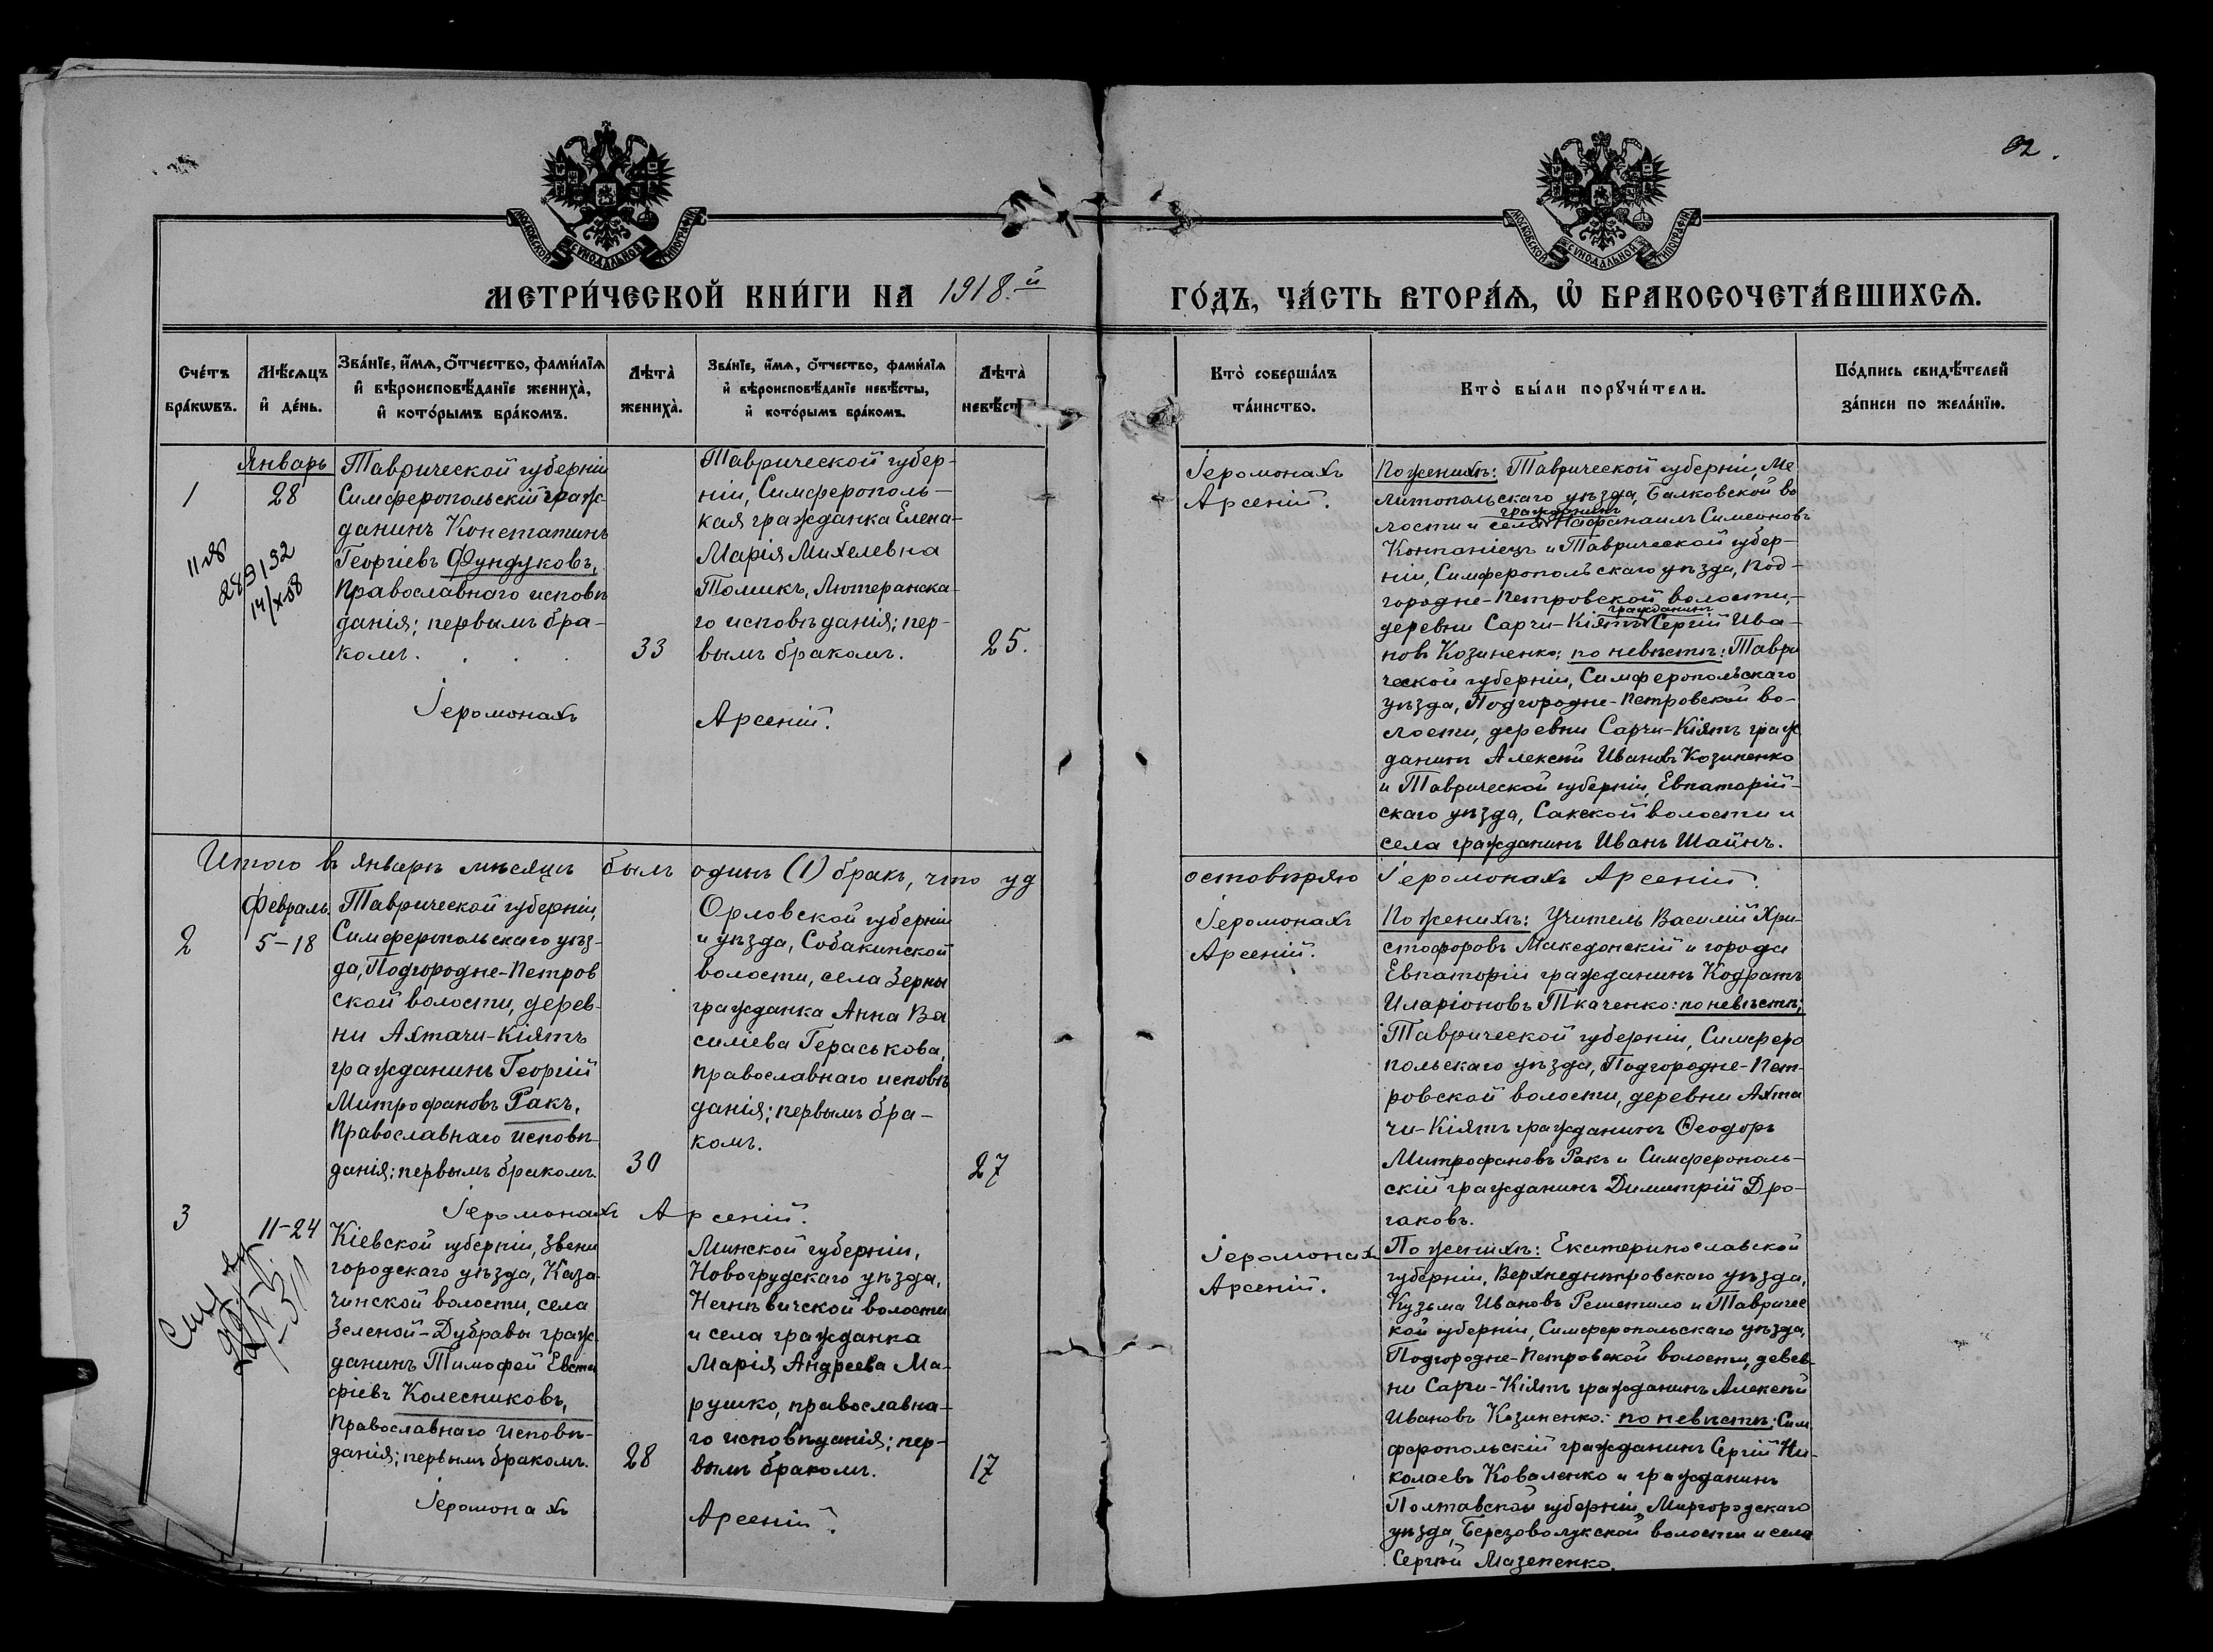 92.
МОСКОВСКОЙ СѴНОДАЛЬНОЙ ТИПОГРАФІИ
МОСКОВСКОЙ СѴНОДАЛЬНОЙ ТИПОГРАФІИ
МЕТРИ́ЧЕСКОЙ КНИ́ГИ НА 1918.й
ГО́ДЪ, ЧА́СТЬ ВТОРА́Ѧ, Ѡ҆ БРАКОСОЧЕТА́ВШИХСѦ.
Сче́тъ
бра́кѡвъ.
Мѣ́сѧцъ
и҆ де́нь.
Зва́нїе, и҆́мѧ, ѻ҆́тчество, фами́лїѧ
и҆ вѣроисповѣ́данїе жениха̀,
и҆ кото́рымъ бра́комъ.
Лѣта̀
жениха̀.
Зва́нїе, и҆́мѧ, ѻ҆́тчество, фами́лїѧ
и҆ вѣроисповѣ́данїе невѣ́сты,
и҆ кото́рымъ бра́комъ.
Лѣта̀
невѣ́ст
Кто̀ соверша́лъ
та́инство.
Кто̀ бы́ли порꙋчи́тели.
По́дпись свидѣ́телей
за́писи по жела́нїю.
1
Январь
28
Таврической губерніи
Симферопольскій граж-
данинъ Константинъ
Георгіевъ Фундуковъ,
Православнаго исповѣ
данія; первымъ бра-
комъ. . . .
33
Таврической губер-
ніи, Симферополь-
кая гражданка Елена-
Марія Михелевна
Томикъ, Лютеранска-
го исповѣданія; пер-
вымъ бракомъ.
25.
Іеромонахъ Арсеній.
Іеромонахъ
Арсеній.
По женихѣ: Таврической губерніи, Ме
литопольскаго уѣзда, Балковской во
гражданинъ
лости и села Нафанаилъ Симеоновъ
Компаніецъ и Таврической губер-
ніи, Симферопольскаго уѣзда, Под-
городне-Петровской волости,-
гражданинъ
деревни Сарчи-Кіятъ Сергій Ива-
новъ Козиненко; по невѣстѣ: Таври
ческой губерніи, Симферопольскаго
уѣзда, Подгородне-Петровской во-
лости, деревни Сарчи-Кіятъ граж
данинъ Алексѣй Ивановъ Козиненко
и Таврической губерніи, Евпаторій-
скаго уѣзда, Сакской волости и
села гражданинъ Иванъ Шайнъ.
Итого в январѣ мѣсяцѣ былъ одинъ (1) бракъ, что уд
остовѣряю Іеромонахъ Арсеній.
2
Февраль.
5-18
Таврической губерніи,
Симферопольскаго уѣз-
да, Подгородне-Петров
ской волости, дерев-
ни Ахтачи-Кіятъ
гражданинъ Георгій
Митрофановъ Ракъ,
Православнаго исповѣ-
данія; первымъ бракомъ.
30
Орловской губерніи
и уѣзда, Собакинской
волости, села Зерны
гражданка Анна Ва
силіева Гераськова,
Православнаго исповѣ
данія; первымъ бра-
комъ.
27
Іеромонахъ Арсеній.
Іеромонахъ
Арсеній.
По женихѣ: Учитель Василій Хри-
стофоровъ Македонскій и города
Евпаторіи гражданинъ Кодратъ
Иларіоновъ Ткаченко: по невѣстѣ;
Таврической губерніи, Симферо
польскаго уѣзда, Подгородне-Пет-
ровской волости, деревни Ахта
чи-Кіятъ гражданинъ Ѳеодоръ
Митрофановъ Ракъ и Симферополь-
скій гражданинъ Димитрій Дро-
гаковъ.
3
11-24
Кіевской губерніи, Звени
городскаго уѣзда, Каза-
чинской волости, села
Зеленой-Дубравы граж-
данинъ Тимофей Евста
фіевъ Колесниковъ,
Православнаго Исповѣ-
данія; первымъ бракомъ.
28
Минской губерніи,
Новогрудскаго уѣзда,
Негнѣвичской волости
и села гражданка
Марія Андреева Ма-
рушко, православна-
го исповѣданія; пер-
вымъ бракомъ.
17
Іеромонахъ Арсеній.
Іеромонахъ
Арсеній.
По женихѣ: Екатеринославской
губерніи, Верхнеднѣпровскаго уѣзда,
Кузьма Ивановъ Решетило и Тавричес
кой губерніи, Симферопольскаго уѣзда,
Подгородне-Петровской волости, дерев-
ни Сарчи-Кіятъ гражданинъ Алексѣй
Ивановъ Козиненко: по невѣстѣ; Сим
феропольскій гражданинъ Сергій Ни-
колаевъ Коваленко и гражданинъ
Полтавской губерніи, Миргородскаго
уѣзда, Березоволукской волости и села
Сергѣй Мазепенко.